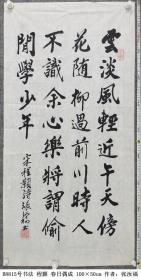 雲淡風輕近午天傍
花随柳過前川時人
不識余心樂將謂偷
閒學少年
宋程顥詩張汝瑀書
B8815号书法 程颢 春日偶成 100×50cm 作者：张汝瑀